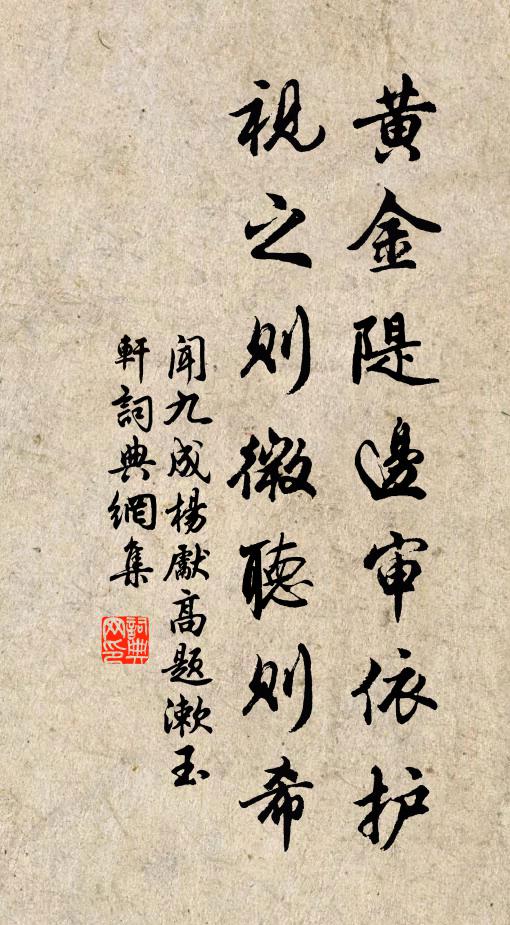 黄金隄邊审依护
視之則微聽則希
聞九成楊獻高題漱玉
軒詞典網集
詞典网印